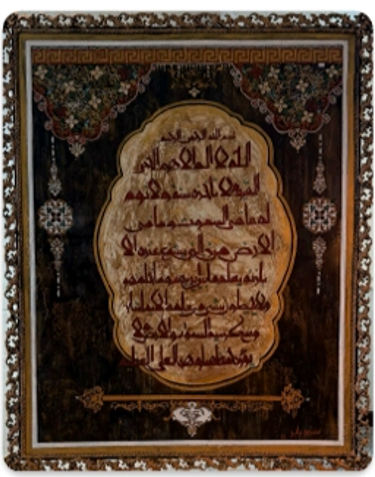 بسم الله الرحمن الرحيم
الله لا اله الا هو الحي
القيوم لا تاخذه سنة ولا نوم
له ما في السموت وما في
الارض من ذا الذي يشفع عنده الا
باذنه يعلم ما بين ايديهم وما خلفهم
ولا يحيطون بشي من علمه الا بما شا
وسع كرسيه السموت والارض ولا
يوده حفظهما وهو العلي العظيم